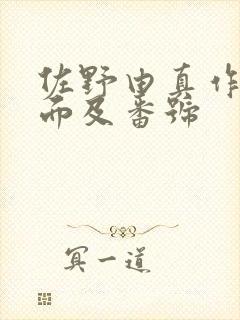 佐野由真作
而及番號
冥一道